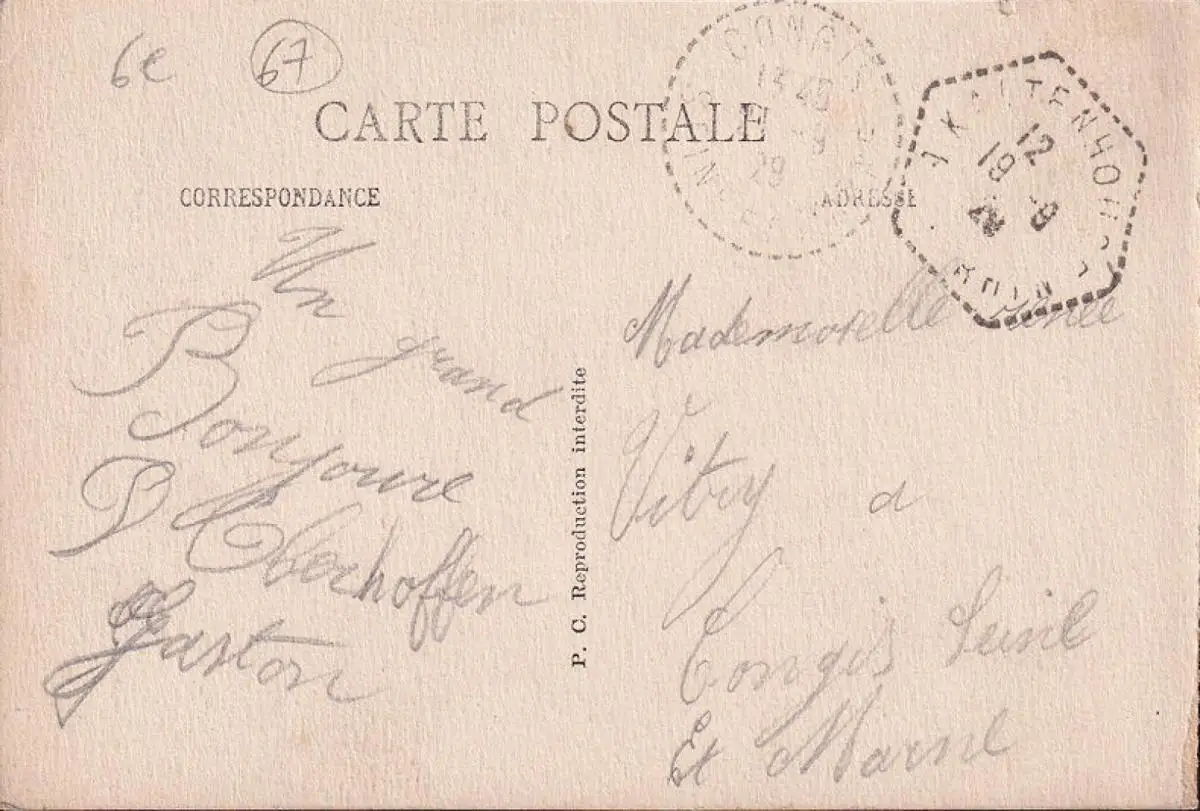 6e
67
CARTE POSTALE
CORRESPONDANCE
ADRESSE
CONGIS
13 40
9
29
KALTENHOU
12
19 -9
RHIN
Un
grand
Bonjoure
D'Oberhoffen
Gaston
P. C. Reproduction interdite
Mademoselle
Vitry a
Congis Seine
Et Marne